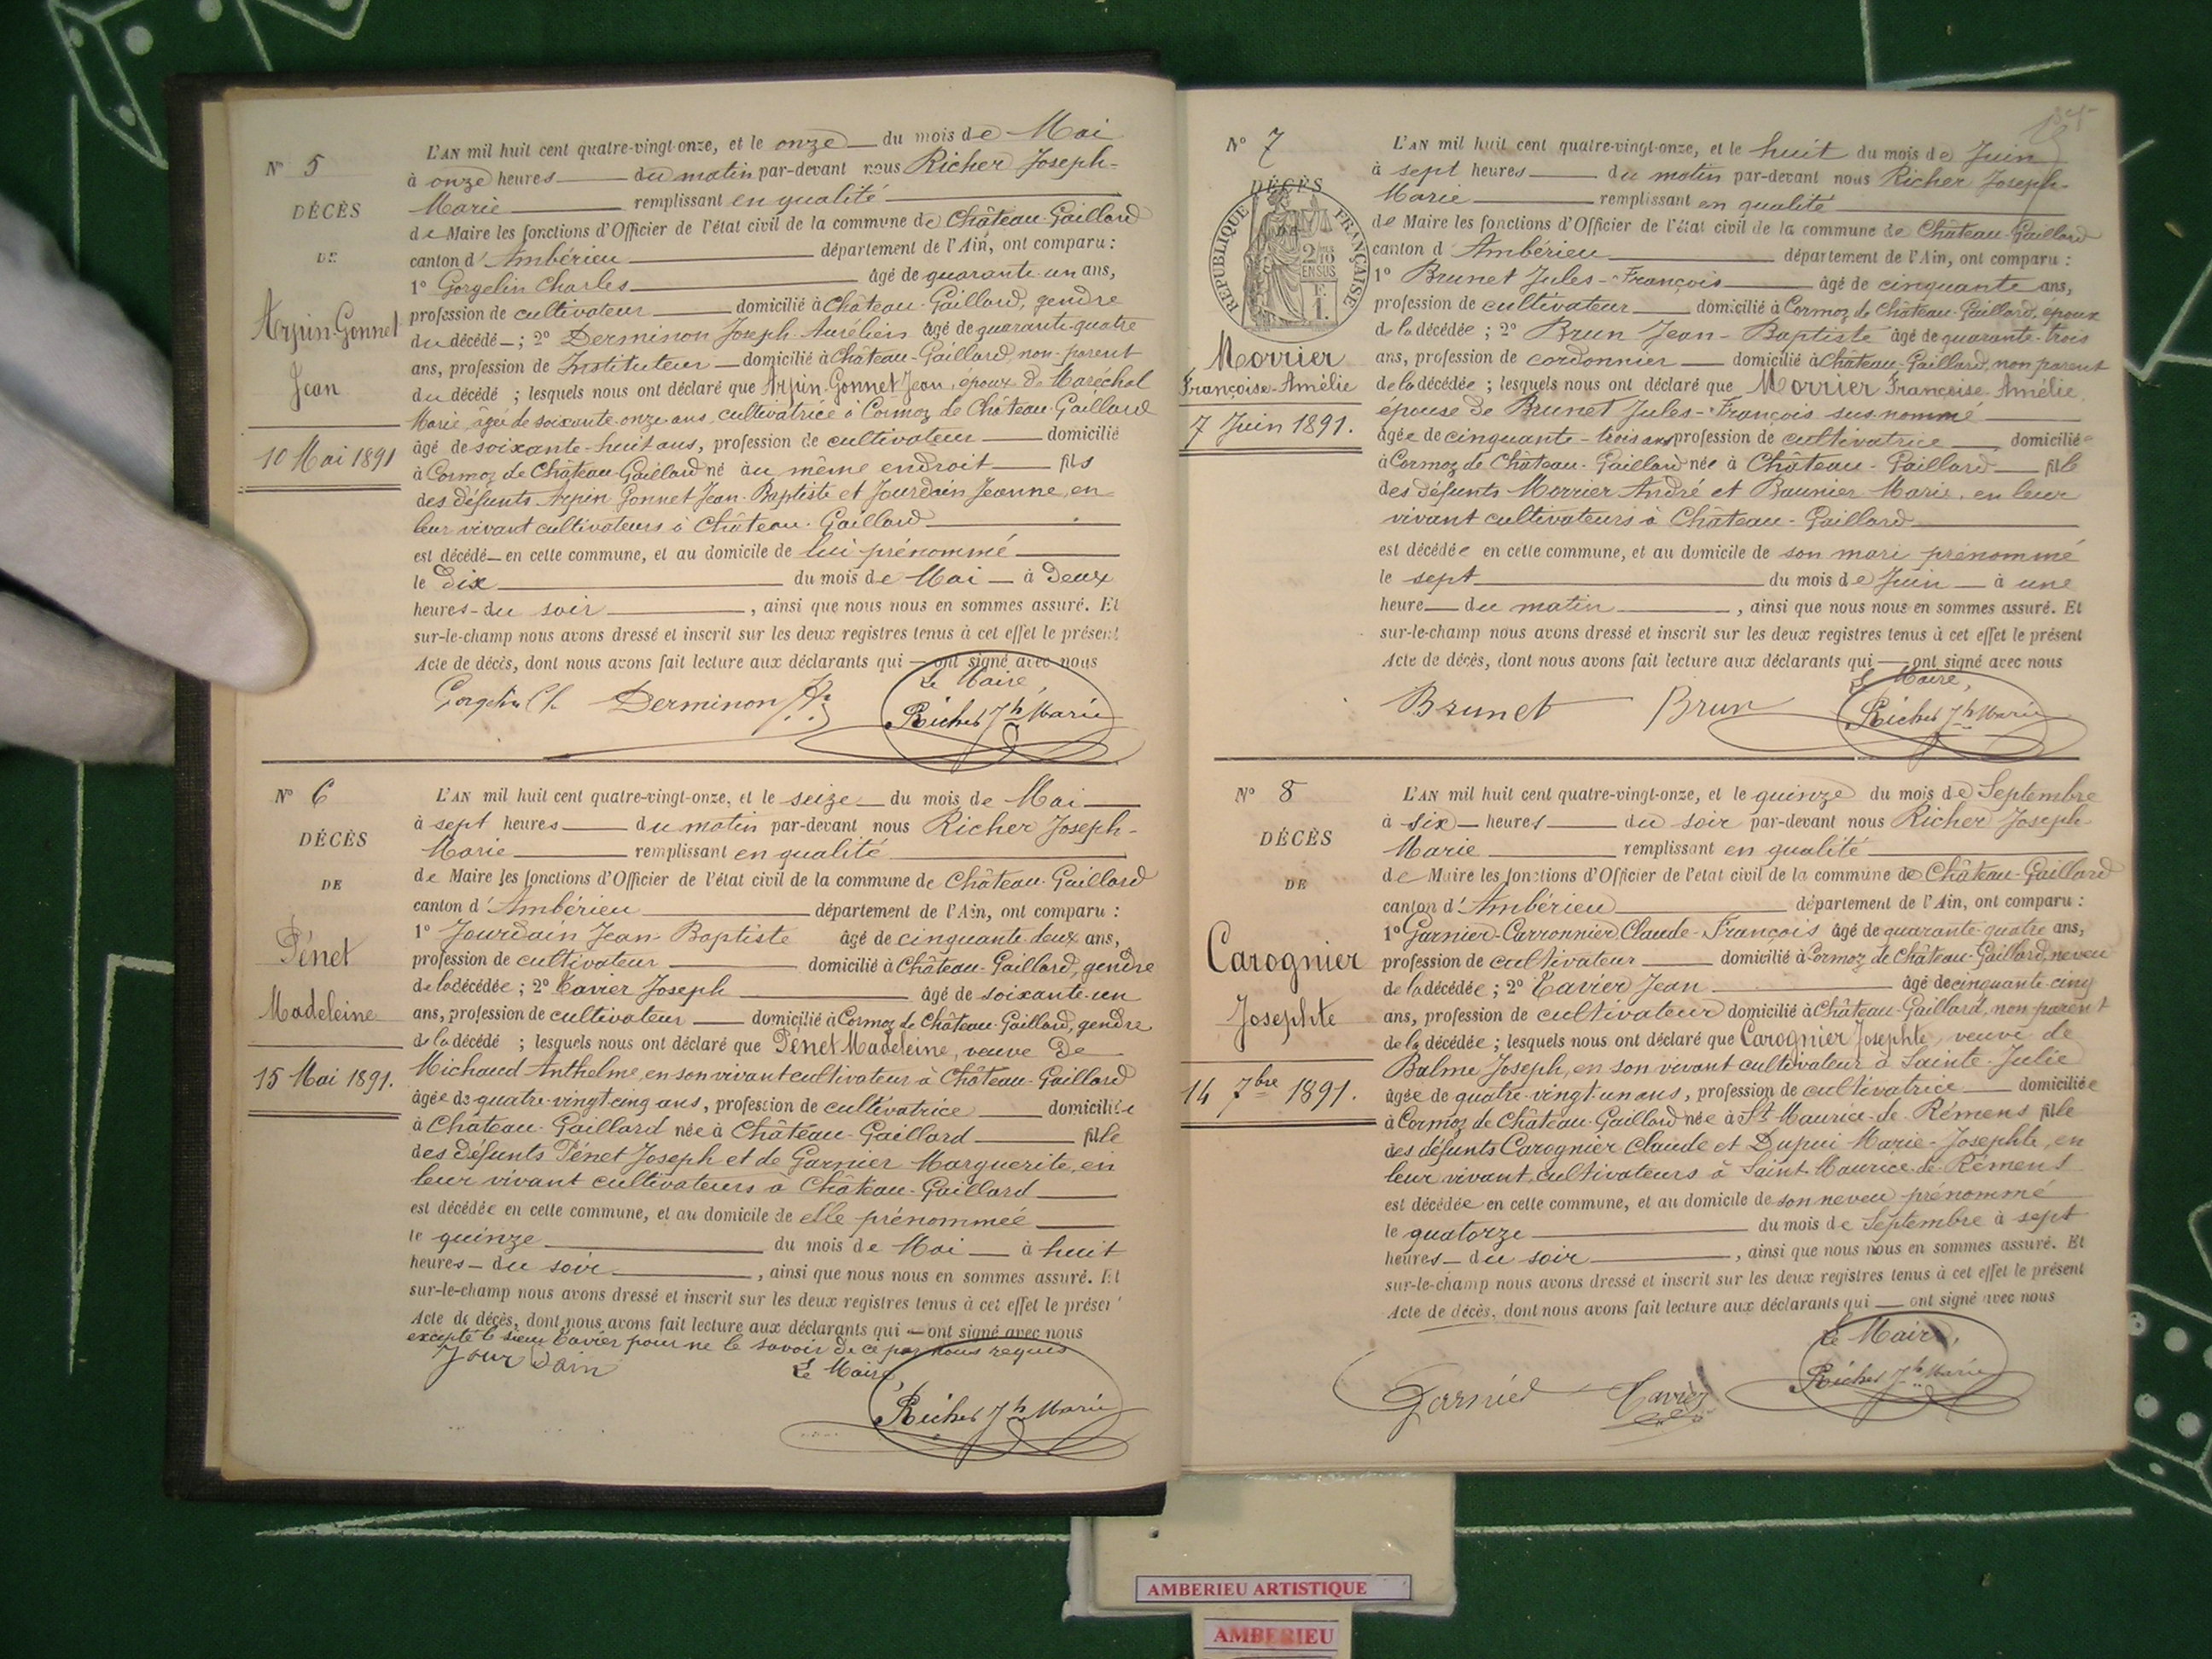 N° 5
DÉCÈS
DE
Arpin-Gonnet
Jean
10 Mai 1891
L'AN mil huit cent quatre-vingt-onze, et le onze du mois de Mai
à onze heures du matin par-devant nous Richer Joseph-
Marie remplissant en qualité
de Maire les fonctions d'Officier de l'état civil de la commune de Château-Gaillard
canton d'Ambérieu département de l'Ain, ont comparu :
1° Gorgelin Charles âgé de quarante-un ans,
profession de cultivateur domicilié à Château-Gaillard, gendre
du décédé ; 2° Derminon Joseph-Aurélien âgé de quarante-quatre
ans, profession de Instituteur domicilié à Château-Gaillard, non-parent
du décédé ; lesquels nous ont déclaré que Arpin-Gonnet Jean, époux de Maréchal
Marie, âgée de soixante-onze ans, cultivatrice à Cormoz de Château-Gaillard
âgé de soixante-huit ans, profession de cultivateur domicilié
à Cormoz de Château-Gaillard né au même endroit fils
des défunts Arpin-Gonnet Jean-Baptiste et Jourdain Jeanne, en
leur vivant cultivateurs à Château-Gaillard
est décédé en cette commune, et au domicile de lui prénommé
le dix du mois de Mai à deux
heures du soir, ainsi que nous nous en sommes assuré. Et
sur-le-champ nous avons dressé et inscrit sur les deux registres tenus à cet effet le présent
Acte de décès, dont nous avons fait lecture aux déclarants qui ont signé avec nous
Le Maire,
Gorgelin Ch. Derminon Richer Jh Marie
N° 6
DÉCÈS
DE
Pénet
Madeleine
15 Mai 1891.
L'AN mil huit cent quatre-vingt-onze, et le seize du mois de Mai
à sept heures du matin par-devant nous Richer Joseph-
Marie remplissant en qualité
de Maire les fonctions d'Officier de l'état civil de la commune de Château-Gaillard
canton d'Ambérieu département de l'Ain, ont comparu :
1° Jourdain Jean-Baptiste âgé de cinquante-deux ans,
profession de cultivateur domicilié à Château-Gaillard, gendre
de la décédée ; 2° Tavier Joseph âgé de soixante-un
ans, profession de cultivateur domicilié à Cormoz de Château-Gaillard, gendre
de la décédé ; lesquels nous ont déclaré que Pénet Madeleine, veuve de
Michaud Anthelme, en son vivant cultivateur à Château-Gaillard
âgée de quatre-vingt-cinq ans, profession de cultivatrice domiciliée
à Château-Gaillard née à Château-Gaillard fille
des défunts Pénet Joseph et de Garnier Marguerite, en
leur vivant cultivateurs à Château-Gaillard
est décédée en cette commune, et au domicile de elle prénommée
le quinze du mois de Mai à huit
heures du soir, ainsi que nous nous en sommes assuré. Et
sur-le-champ nous avons dressé et inscrit sur les deux registres tenus à cet effet le présent
Acte de décès, dont nous avons fait lecture aux déclarants qui ont signé avec nous
excepté le sieur Tavier pour ne le savoir de ce par nous requis
Jourdain Le Maire,
Richer Jh Marie
N° 7
DÉCÈS
RÉPUBLIQUE FRANÇAISE
2/10 EN SUS
Morrier
Françoise-Amélie
7 Juin 1891.
L'AN mil huit cent quatre-vingt-onze, et le huit du mois de Juin
à sept heures du matin par-devant nous Richer Joseph-
Marie remplissant en qualité
de Maire les fonctions d'Officier de l'état civil de la commune de Château-Gaillard
canton d'Ambérieu département de l'Ain, ont comparu :
1° Brunet Jules-François âgé de cinquante ans,
profession de cultivateur domicilié à Cormoz de Château-Gaillard, époux
de la décédée ; 2° Brun Jean-Baptiste âgé de quarante-trois
ans, profession de cordonnier domicilié à Château-Gaillard, non parent
de la décédée ; lesquels nous ont déclaré que Morrier Françoise-Amélie,
épouse de Brunet Jules-François sus-nommé
âgée de cinquante-trois ans profession de cultivatrice domiciliée
à Cormoz de Château-Gaillard née à Château-Gaillard fille
des défunts Morrier André et Baunier Marie, en leur
vivant cultivateurs à Château-Gaillard
est décédée en cette commune, et au domicile de son mari prénommé
le sept du mois de Juin à une
heure du matin, ainsi que nous nous en sommes assuré. Et
sur-le-champ nous avons dressé et inscrit sur les deux registres tenus à cet effet le présent
Acte de décès, dont nous avons fait lecture aux déclarants qui ont signé avec nous
Le Maire,
Brunet Brun Richer Jh Marie
N° 8
DÉCÈS
DE
Carognier
Josephte
14 7bre 1891.
L'AN mil huit cent quatre-vingt-onze, et le quinze du mois de Septembre
à six heures du soir par-devant nous Richer Joseph-
Marie remplissant en qualité
de Maire les fonctions d'Officier de l'état civil de la commune de Château-Gaillard
canton d'Ambérieu département de l'Ain, ont comparu :
1° Garnier-Carronnier Claude-François âgé de quarante-quatre ans,
profession de cultivateur domicilié à Cormoz de Château-Gaillard, neveu
de la décédée ; 2° Tavier Jean âgé de cinquante-cinq
ans, profession de cultivateur domicilié à Château-Gaillard, non parent
de la décédée ; lesquels nous ont déclaré que Carognier Josephte, veuve de
Balme Joseph, en son vivant cultivateur à Sainte-Julie
âgée de quatre-vingt-un ans, profession de cultivatrice domiciliée
à Cormoz de Château-Gaillard née à St Maurice-de-Rémens fille
des défunts Carognier Claude et Dupui Marie-Josephte, en
leur vivant cultivateurs à Saint-Maurice-de-Rémens
est décédée en cette commune, et au domicile de son neveu prénommé
le quatorze du mois de Septembre à sept
heures du soir, ainsi que nous nous en sommes assuré. Et
sur-le-champ nous avons dressé et inscrit sur les deux registres tenus à cet effet le présent
Acte de décès, dont nous avons fait lecture aux déclarants qui ont signé avec nous
Le Maire,
Garnier Tavier Richer Jh Marie
AMBERIEU ARTISTIQUE
AMBERIEU